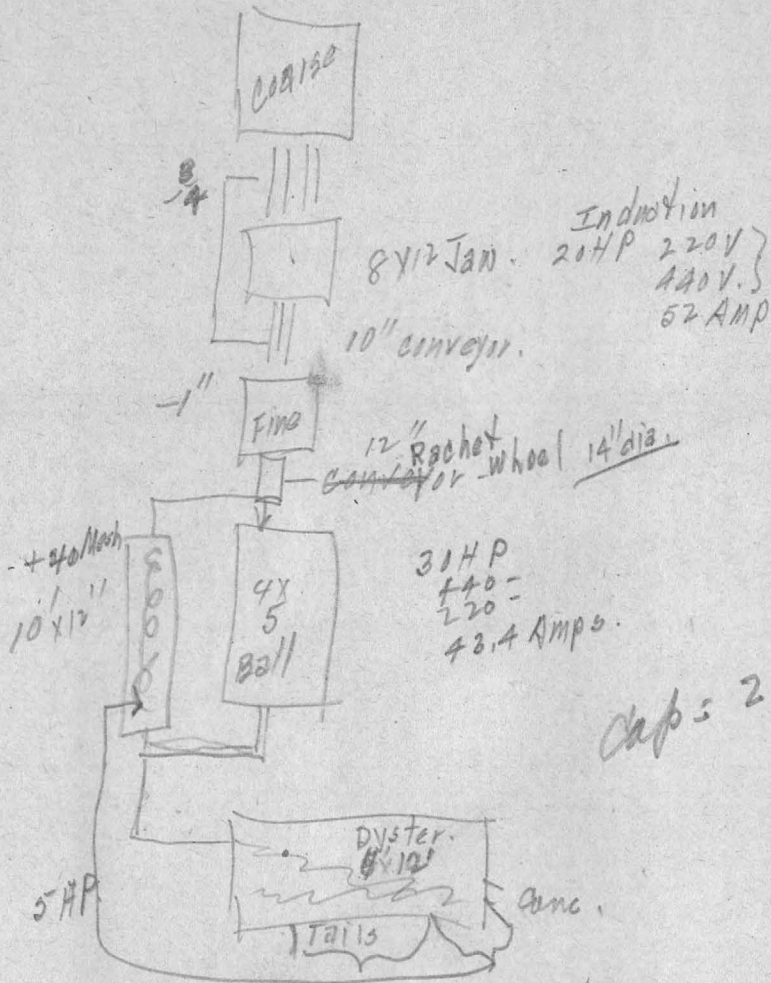 Coarse
-3/4
8 x 12 Jaw.
Induction
20 HP 220V }
440V. }
52 Amp
10" conveyor.
-1"
Fine
12" Rachet
Conveyor wheel 14" dia.
-+40 Mesh
10' x 12"
4 x
5
Ball
30 HP
440 =
220 =
43,4 Amps.
Cap = 2
Dyster.
x 12'
5 HP
Tails
Conc.